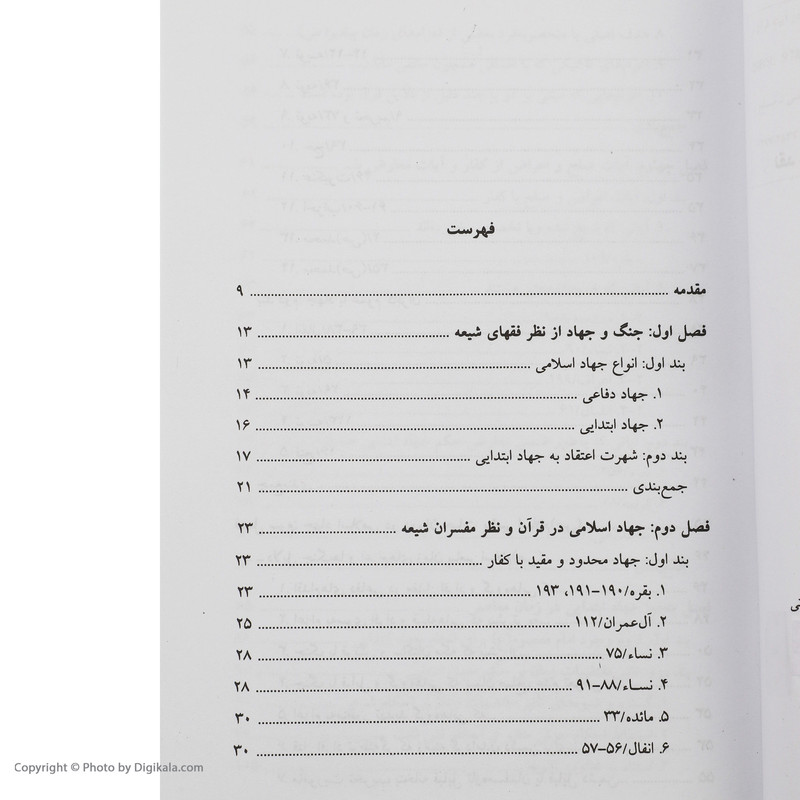 فهرست
مقدمه ........ ۹
فصل اول: جنگ و جهاد از نظر فقهای شیعه ........ ۱۳
بند اول: انواع جهاد اسلامی ........ ۱۳
۱. جهاد دفاعی ........ ۱۴
۲. جهاد ابتدایی ........ ۱۶
بند دوم: شهرت اعتقاد به جهاد ابتدایی ........ ۱۷
جمع‌بندی ........ ۲۱
فصل دوم: جهاد اسلامی در قرآن و نظر مفسران شیعه ........ ۲۳
بند اول: جهاد محدود و مقید با کفار ........ ۲۳
۱. بقره/۱۹۰-۱۹۱، ۱۹۳ ........ ۲۳
۲. آل‌عمران/۱۱۲ ........ ۲۵
۳. نساء/۷۵ ........ ۲۸
۴. نساء/۸۸-۹۱ ........ ۲۸
۵. مائده/۳۳ ........ ۳۰
۶. انفال/۵۶-۵۷ ........ ۳۰
Copyright © Photo by Digikala.com